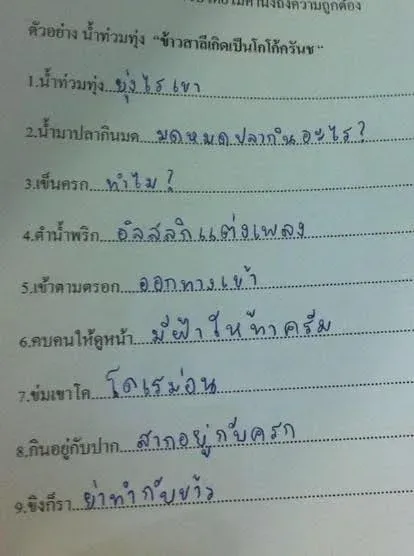 ถึงความถูกต้อง
ตัวอย่าง น้ำท่วมทุ่ง "ข้าวสาลีเกิดเป็นโกโก้ครันช"
1.น้ำท่วมทุ่ง ยุ่งไรเขา
2.น้ำมาปลากินมด มดหมดปลากินอะไร?
3.เข็นครก ทำไม?
4.ตำน้ำพริก อัสสลิกแต่งเพลง
5.เข้าตามตรอก ออกทางเข้า
6.คบคนให้ดูหน้า มีฝ้าให้ทาครีม
7.ข่มเขาโค โดเรม่อน
8.กินอยู่กับปาก สากอยู่กับครก
9.ขิงก็รา ย่าทำกับข้าว